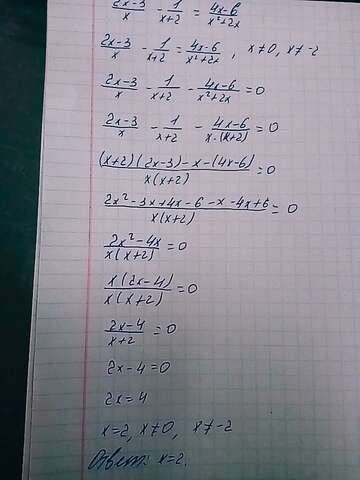 (2x-3)/x - 1/(x+2) = (4x-6)/(x²+2x)
(2x-3)/x - 1/(x+2) = (4x-6)/(x²+2x) , x≠0, x≠-2
(2x-3)/x - 1/(x+2) - (4x-6)/(x²+2x) = 0
(2x-3)/x - 1/(x+2) - (4x-6)/(x·(x+2)) = 0
((x+2)(2x-3)-x-(4x-6))/(x(x+2)) = 0
(2x²-3x+4x-6-x-4x+6)/(x(x+2)) = 0
(2x²-4x)/(x(x+2)) = 0
(x(2x-4))/(x(x+2)) = 0
(2x-4)/(x+2) = 0
2x-4=0
2x=4
x=2, x≠0, x≠-2
Ответ: x=2.